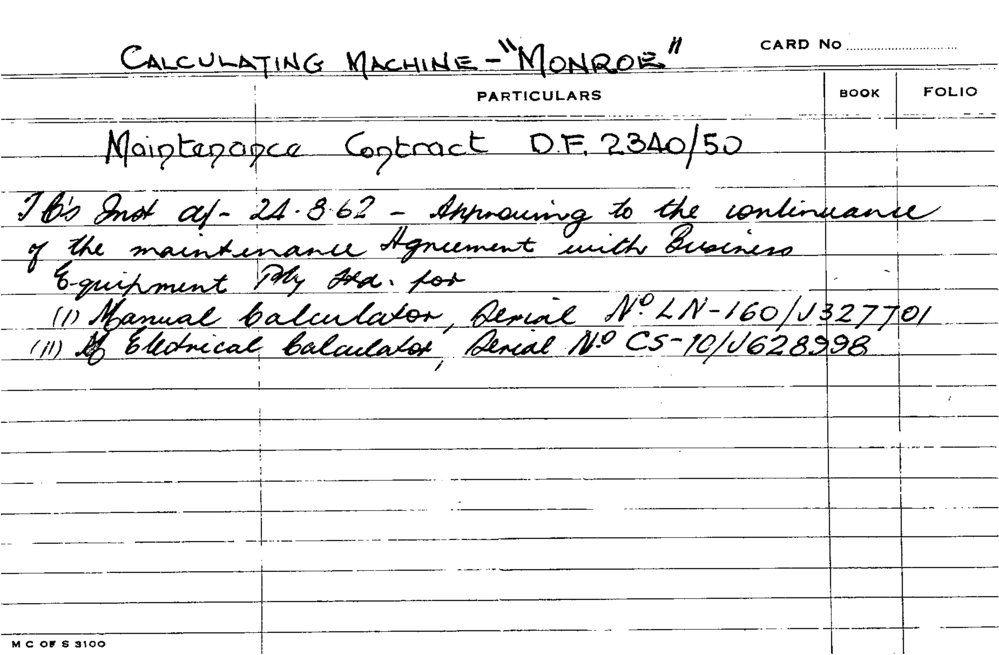 CALCULATING MACHINE - "MONROE"
CARD No
PARTICULARS BOOK FOLIO
Maintenance Contract D.F. 2340/50
Inst of - 24.8.62 - Approving to the continuance
of the maintenance Agreement with Business
Equipment Pty Ltd. for
(I) Manual Calculator, Serial No LN-160/J327701
(II) Electrical Calculator, Serial No CS-10/J628998
M C OF S 3100